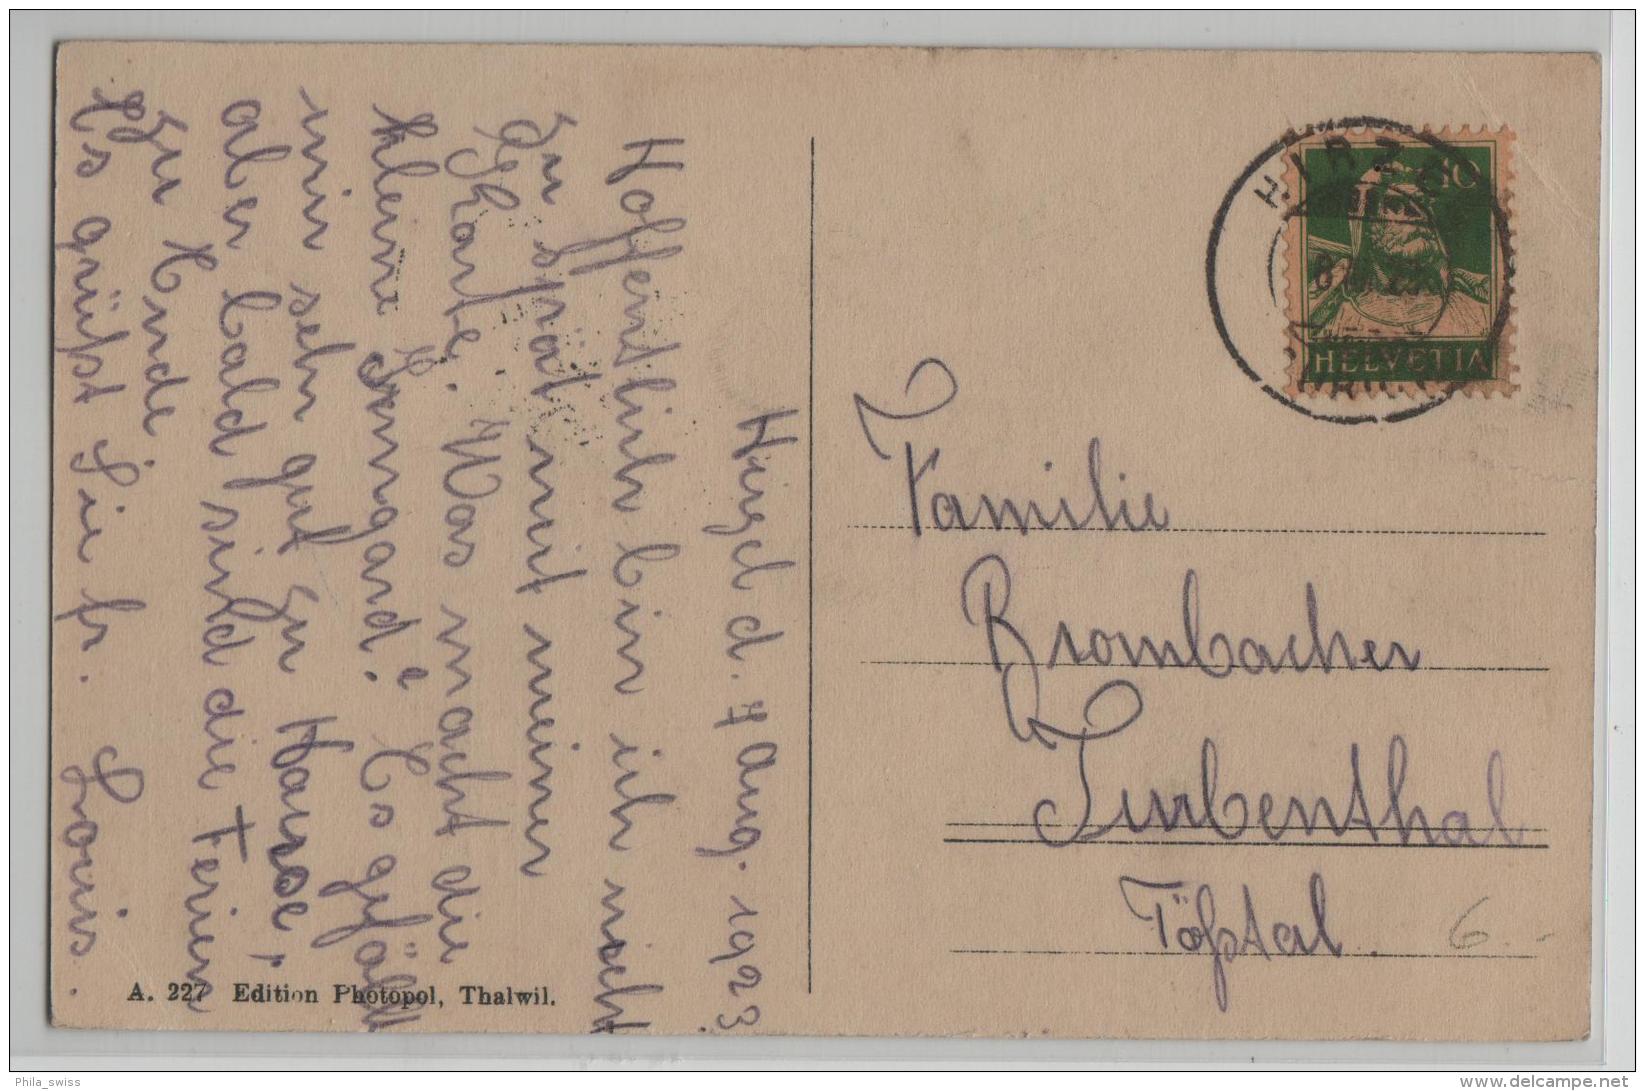 Hirzel d. 7 Aug. 1923.
Hoffentlich bin ich nicht
zu spät mit meiner
Karte. Was macht die
kleine Irmgard? Es gefällt
mir sehr gut zu Hause,
aber bald sind die Ferien
zu Ende.
Es grüßt Sie fr. Louis.
Familie
Brombacher
Turbenthal
Tößtal.
6.-
HIRZEL
10
HELVETIA
A. 227 Edition Photopol, Thalwil.
Phila_swiss
delcampe.net